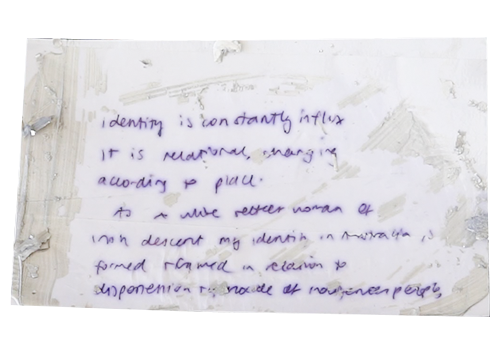 identity is constantly influx
it is relational, changing
according to place.
As a white settler woman of
Irish descent my identity in Australia is
formed & framed in relation to
dispossession of indigenous people,